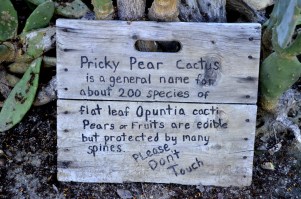 Pricky Pear Cactus
is a general name for
about 200 species of
flat leaf Opuntia cacti
Pears or Fruits are edible
but protected by many
spines. PLease
Dont
Touch